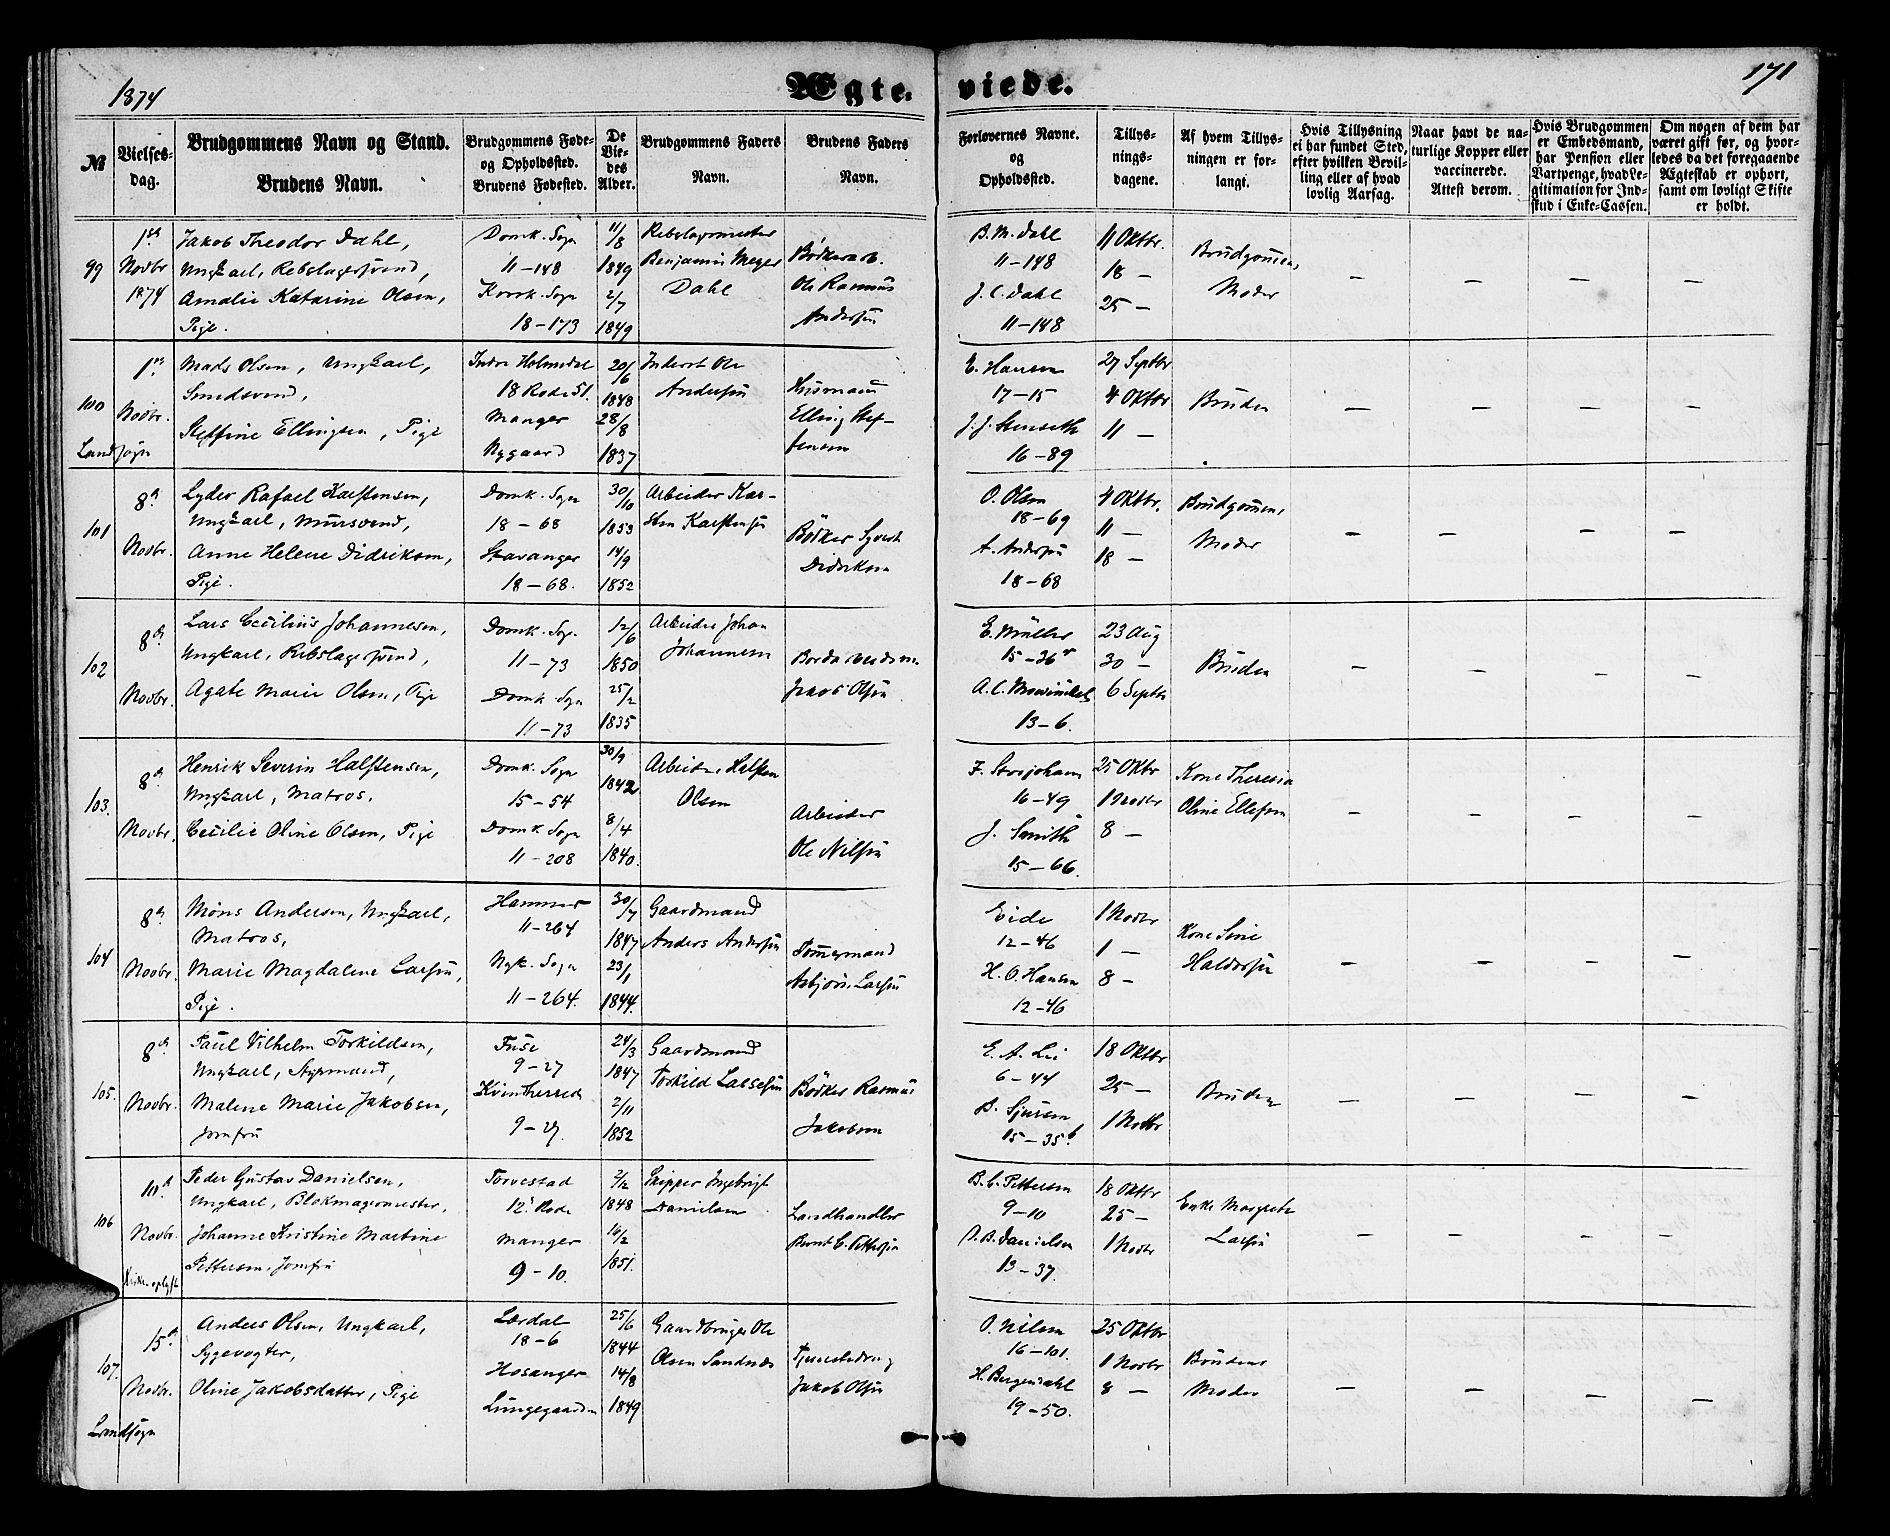 1874
Ægte-
viede.
171
№
Vielses-
dag.
Brudgommens Navn og Stand.
Brudens Navn.
Brudgommens Føde-
og Opholdssted.
Brudens Fødested.
De
Vie-
des
Alder.
Brudgommens Faders
Navn.
Brudens Faders
Navn.
Forlovernes Navne.
og
Opholdssted.
Tillys-
nings-
dagene.
Af hvem Tillys-
ningen er for-
langt.
Hvis Tillysning
ei har fundet Sted,
efter hvilken Bevil-
ling eller af hvad
lovlig Aarsag.
Naar havt de na-
turlige Kopper eller
vaccinerede.
Attest derom.
Hvis Brudgommen
er Embedsmand,
har Pension eller
Vartpenge, hvad Le-
gitimation for Ind-
skud i Enke-Cassen.
Om nogen af dem har
været gift før, og hvor-
ledes da det foregaaende
Ægteskab er ophørt,
samt om lovligt Skifte
er holdt.
99
1ste
Novbr
1874
Jakob Theodor Dahl,
Ungkarl, Rebslagersvend,
Amalie Katarine Olsen,
Pige.
Domk. Sogn
11-148
Korsk. Sogn
18-173
11/8
1849
2/7
1849
Rebslagermester
Benjamin Meyer
Dahl
Bødkerarb.
Ole Rasmus
Andersen
B. M. Dahl
11-148
J. C. Dahl
11-148
11 Oktbr.
18 —
25 —
Brudgommens
Moder
100
1ste
Novbr.
Landsogn
Mads Olsen, Ungkarl,
Smedsvend,
Steffine Ellingsen, Pige
Indre Holmedal
18 Rode 51.
Manger
Nygaard
20/6
1848
28/8
1837
Inderst Ole
Andersen
Husmann
Elling Stef-
fensen
E. Hansen
17-15
J. J. Stenseth
16-89
27 Septbr
4 Oktbr
11 —
Bruden
101
8de
Novbr.
Lyder Rafael Karstensen,
Ungkarl, Mursvend,
Anne Helene Didriksen,
Pige.
Domk. Sogn
18-68
Stavanger
18-68.
30/10
1853
14/9
1852
Arbeider Kar-
sten Karstensen
Bødker Syvert
Didriksen
O. Olsen
18-69
A. Andersen
18-68
4 Oktbr.
11 —
18 —
Brudgommens
Moder
102
8de
Novbr.
Lars Cecilius Johannesen,
Ungkarl, Rebslagersvend,
Agate Marie Olsen, Pige
Domk. Sogn
11-73
Domk. Sogn
11-73
12/6
1850
25/2
1835
Arbeider Johan
Johannesen
Jakob Olsen
E. Müller
15-36
A. C. Mowinckel
13-6.
23 Aug
30 —
6 Septbr
Bruden
103.
8de
Novbr.
Henrik Severin Halstensen,
Ungkarl, Matros.
Cecilie Oline Olsen, Pige
Domk. Sogn
15-54
Domk. Sogn
11-208
30/9
1842
8/4
1840.
Arbeider Halsten
Olsen
Arbeider
Ole Nilsen
16-49
J. Smith
15-66.
25 Oktbr
1 Novbr
8 —
Kone Theresia
Oline Ellefsen
104
8de
Novbr.
Møns Andersen, Ungkarl,
Matros,
Marie Magdalene Larsen,
Pige.
Hammer
11-264
Nyk. Sogn
11-264.
30/7
1847
23/1
1844.
Gaardmand
Anders Andersen
Tømmermand
Asbjørn Larsen
Eide
12-46
H. O. Hansen
12-46
1 Novbr
1 —
8 —
Kone Sine
Haldorsen
105.
8de
Novbr.
Paul Vilhelm Torkildsen,
Ungkarl, Styrmand,
Malene Marie Jakobsen,
Jomfru
Fuse
9-27
Kvinherred
9-27.
24/3
1847
2/11
1852
Gaardmand
Torkild Larsen
Bødker Rasmus
Jakobsen
E. A. Lie
6-44
B. Sjursen
15-35b
18 Oktbr
25 —
1 Novbr
Bruden
106
10de
Novbr.
Peder Gustav Danielsen,
Ungkarl, Blokmagermester,
Johanne Kristine Martine
Pettersen, Jomfru
Torvestad
12te Rode
Manger
9-10.
2/12
1848
16/2
1851.
Skipper Ingebrigt
Danielsen
Landhandler
Bernt C. Pettersen
B. C. Pettersen
9-10
D. B. Danielsen
13-37.
18 Oktbr
25 —
1 Novbr
Enke Margrete
Larsen
107.
15de
Novbr.
Landsogn
Anders Olsen, Ungkarl,
Sygevogter,
Oline Jakobsdatter, Pige
Lærdal
18-6
Hosanger
Lungegaarden
25/6
1844
14/8
1849
Gaardbruger Ole
Olsen Sandnes
Jakob Olsen
O. Nilsen
16-101.
H. Bergendahl
19-50.
25 Oktbr
1 Novbr
8 —
Brudens
Moder